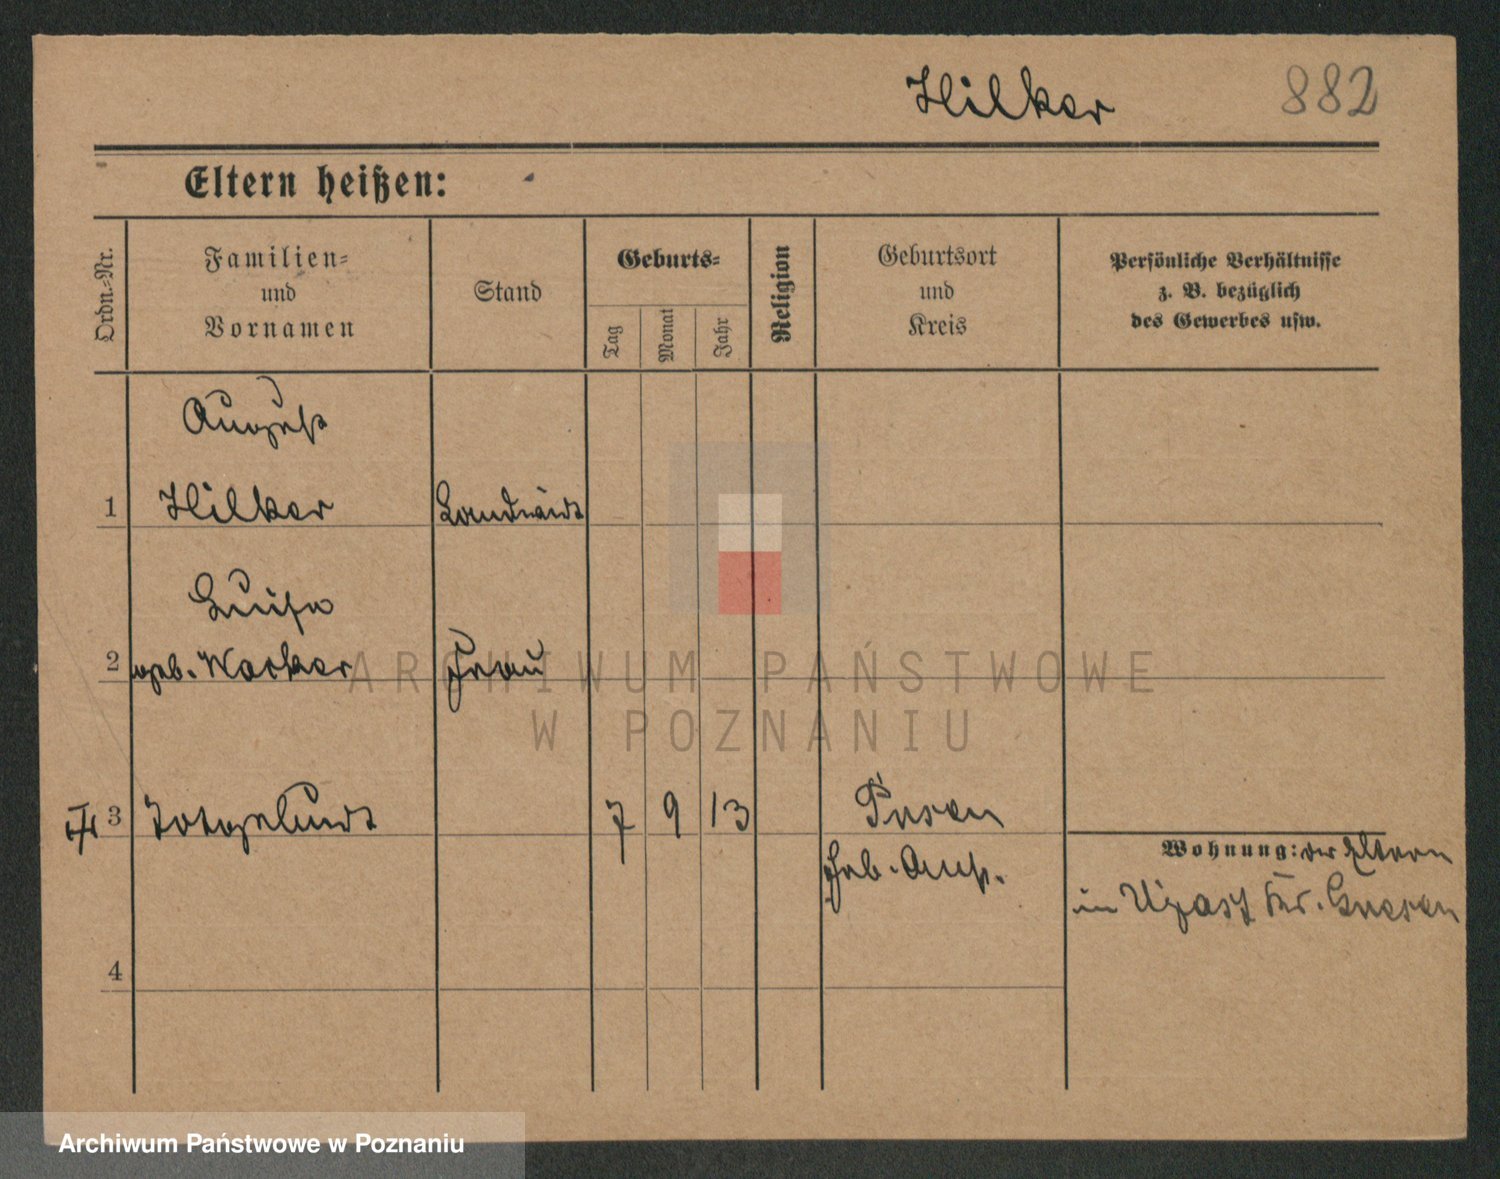 Hilker 882
Eltern heißen:
Ordn.-Nr.
Familien-
und
Vornamen
Stand
Geburts-
Tag
Monat
Jahr
Religion
Geburtsort
und
Kreis
Persönliche Verhältnisse
z. B. bezüglich
des Gewerbes usw.
August
1 Hilker Landwirt
Luise
2 geb. Werker Frau
ARCHIWUM PAŃSTWOWE
W POZNANIU
3 Totgeburt 7 9 13 Posen
Geb. Anst.
Wohnung: der Eltern
in Ujast Kr. Gnesen
4
Archiwum Państwowe w Poznaniu